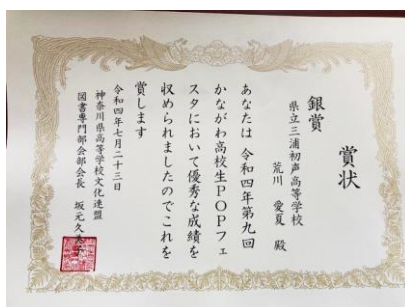 賞状
銀賞
県立三浦初声高等学校
荒川 愛夏 殿
あなたは 令和四年第九回
かながわ高校生POPフェ
スタにおいて優秀な成績を
収められましたのでこれを
賞します
令和四年七月二十三日
神奈川県高等学校文化連盟
図書専門部会部会長 坂元久